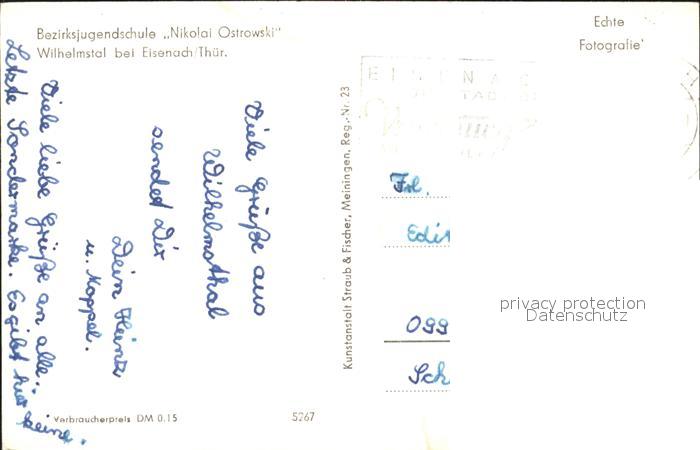 Bezirksjugendschule „Nikolai Ostrowski"
Wilhelmstal bei Eisenach/Thür.
Echte
Fotografie
Viele Grüße aus
Wilhelmsthal
sendet Dir
Dein Heinz
u. Moppel.
Viele liebe Grüße an alle.
Letzte Sondermarke. Es gibt hier
keine.
Verbraucherpreis DM 0.15
5267
Kunstanstalt Straub & Fischer, Meiningen, Reg.-Nr. 23
EISENAC
Frl.
Edit
099
Sch
privacy protection
Datenschutz